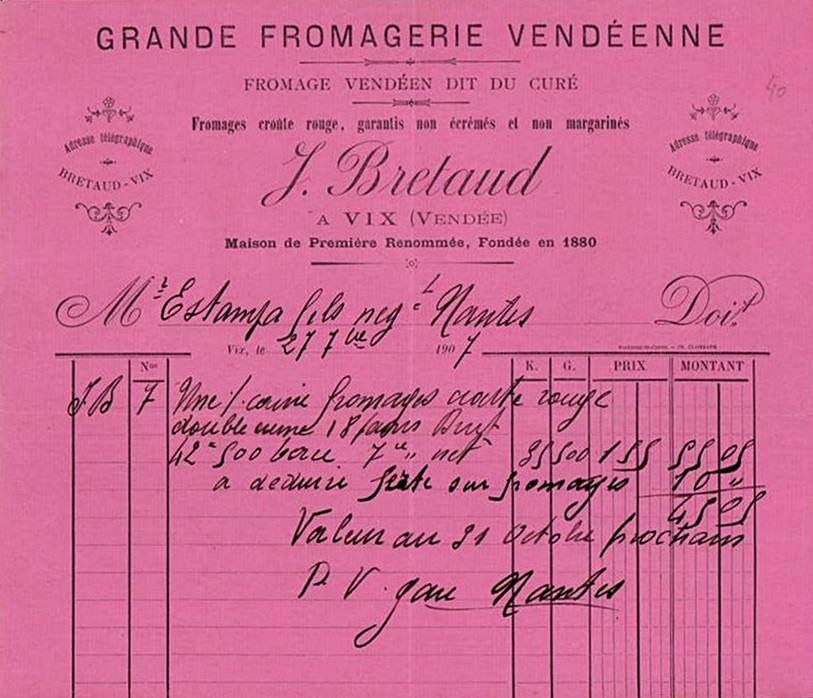 GRANDE FROMAGERIE VENDÉENNE
FROMAGE VENDÉEN DIT DU CURÉ
40
Fromages croûte rouge, garantis non écrémés et non margarinés
Adresse télégraphique
BRETAUD-VIX
Adresse télégraphique
BRETAUD-VIX
J. Bretaud
A VIX (VENDÉE)
Maison de Première Renommée, Fondée en 1880
Mr Estampa fils neg t Nantes Doit
Vix, le 27 7bre 1907
Nos K. G. PRIX MONTANT
JB 7 Une caisse fromages croute rouge
double creme 18 Brut
42 k 500 tare 7 k " net 35 500 1 55 55 05
a deduire sur fromages 10 "
45 05
Valeur au 31 Octobre prochain
P. V. gare Nantes